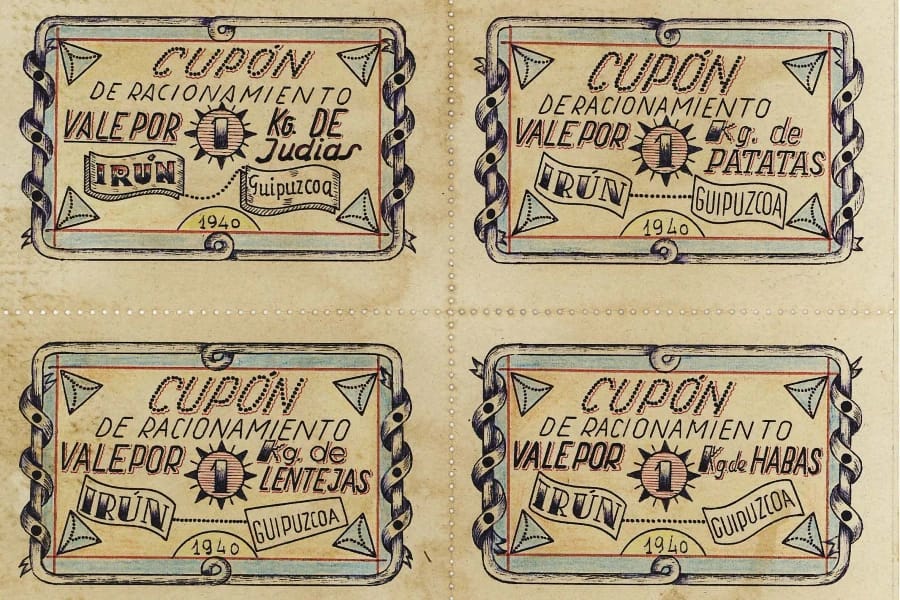 CUPÓN
DE RACIONAMIENTO
VALE POR 1 KG. DE
Judias
IRÚN Guipuzcoa
1940
CUPÓN
DE RACIONAMIENTO
VALE POR 1 Kg. de
PATATAS
IRÚN GUIPUZCOA
1940
CUPÓN
DE RACIONAMIENTO
VALE POR 1 Kg. de
LENTEJAS
IRÚN GUIPUZCOA
1940
CUPÓN
DE RACIONAMIENTO
VALE POR 1 Kg de HABAS
IRÚN GUIPUZCOA
1940